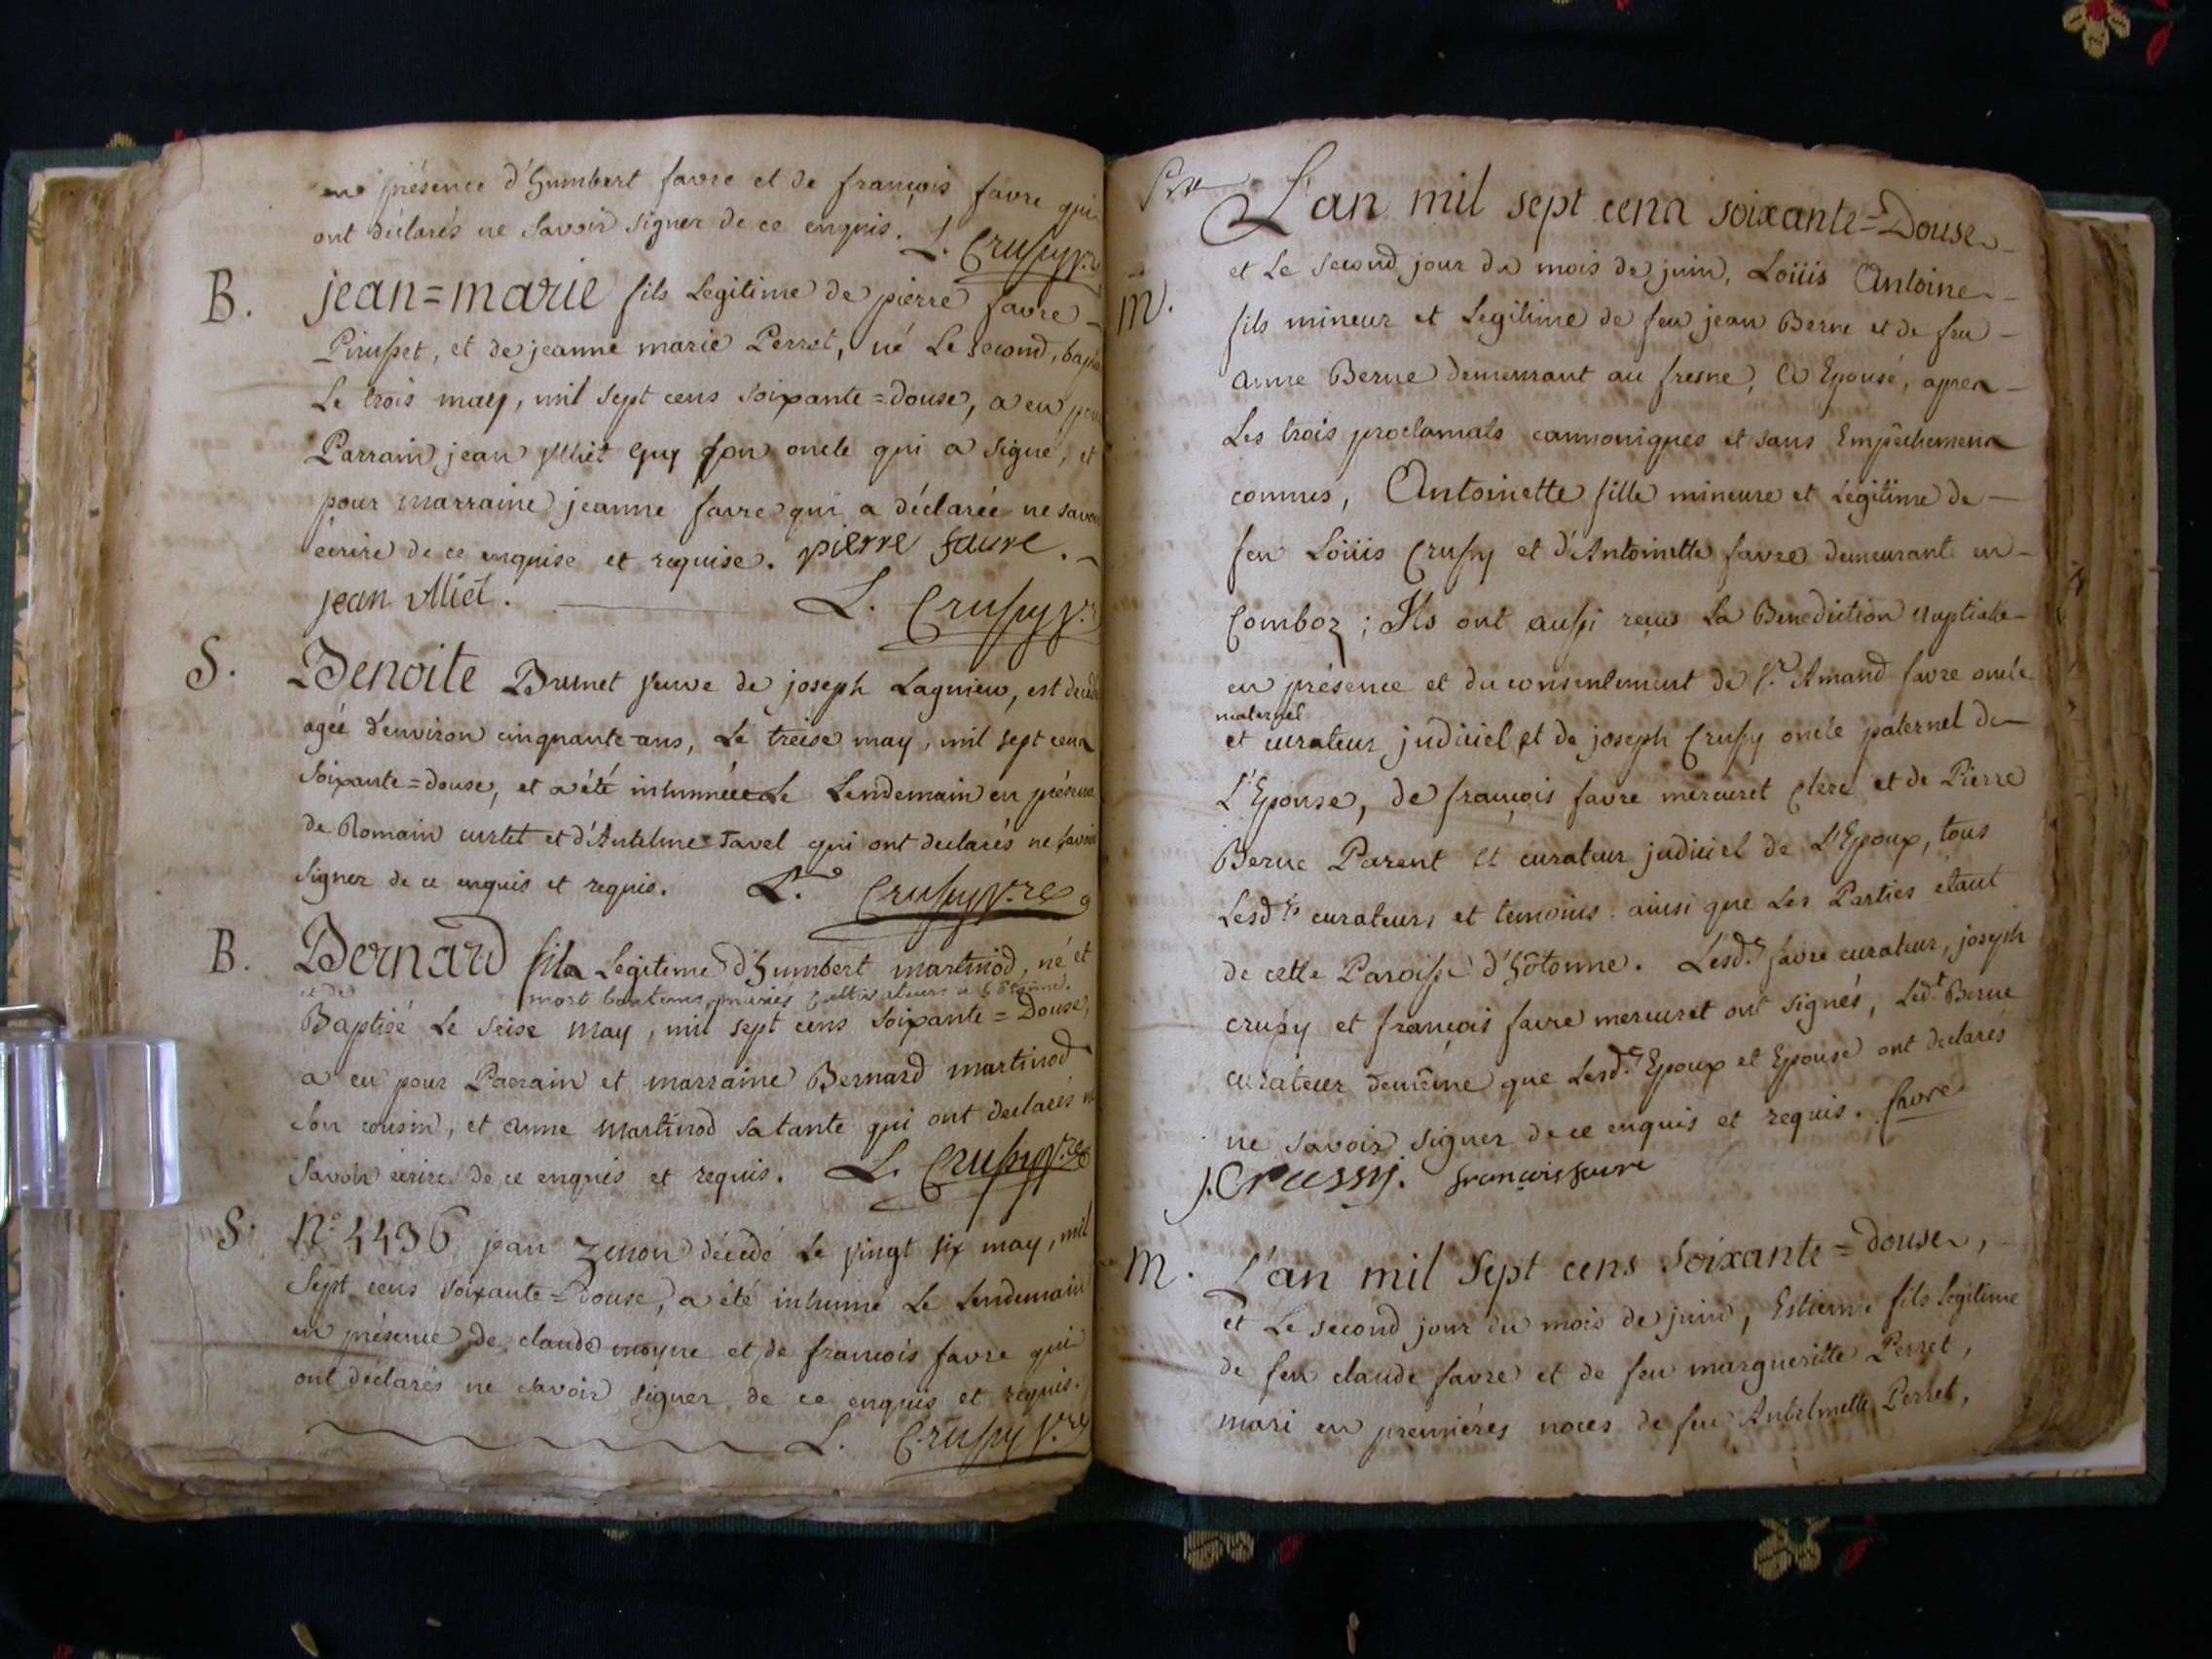 en présence d'humbert favre et de françois favre qui
ont déclarés ne Savoir signer de ce enquis. L. Crussy v.re
B. jean=marie fils Legitime de pierre favre
et de jeanne marie Perret, né Le second,
Le trois may, mil sept cens soixante=douse, a eu pour
Parrain jean Miet Guy son oncle qui a signé, et
pour marraine jeanne favre qui a déclarée ne savoir
écrire de ce enquise et requise. pierre favre.
jean Miet. L. Crussy v.re
S. Benoite Brunet veuve de joseph Lagnieu, est decedée
agée d'environ cinquante ans, Le treise may, mil sept cens
Soixante=douse, et a été inhumée Le Lendemain en présence
de Romain curtet et d'Antelme Tavel qui ont declarés ne savoir
Signer de ce enquis et requis. L. Crussy v.re
B. Bernard fils Legitime d'humbert martinod, né et
et de mort bontems, mariés cultivateurs a hotonne.
Baptisé Le seise may, mil sept cens soixante=Douse,
a eu pour Parrain et marraine Bernard martinod
Son cousin, et anne martinod sa tante qui ont declarés ne
Savoir écrire de ce enquis et requis. L. Crussy v.re
S. N.o 4436 jean zenon décedé Le vingt six may, mil
Sept cens soixante=Douse, a été inhumé Le Lendemain
en présence de claude moyne et de françois favre qui
ont déclarés ne savoir signer de ce enquis et requis.
L. Crussy v.re
L'an mil sept cens soixante=Douse
M. et Le second jour du mois de juin, Loüis Antoine
fils mineur et Legitime de feu jean Berne et de feu
anne Berne demeurant au fresne, a Epousé, apres
Les trois proclamats cannoniques et sans Empêchemens
connus, Antoinette fille mineure et Legitime de
feu Loüis Crussy et d'Antoinette favre demeurant en
Comboz ; Ils ont aussi reçus La Benediction nuptiale
en présence et du consentement de S.r Amand favre oncle
maternel
et curateur judiciel et de joseph Crussy oncle paternel de
L'Epouse, de françois favre mercuret clerc et de Pierre
Berne Parent et curateur judiciel de L'Epoux, tous
Lesd.ts curateurs et temoins ainsi que Les Parties etant
de cette Paroisse d'hôtonne. Lesd.ts favre curateur, joseph
crussy et françois favre mercuret ont signés, Led.t Berne
curateur demême que Lesd.ts Epoux et Epouse ont declarés
ne savoir signer de ce enquis et requis. favre
j. Crussy. françois favre
M. L'an mil Sept cens Soixante=douse,
et Le second jour du mois de juin, Estienne fils legitime
de feu claude favre et de feu margueritte Perret,
mari en premières noces de feu Antelmette Perret,